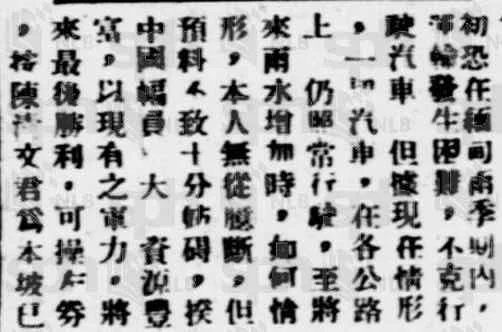 初恐在緬甸雨季期內，
運輸發生困難，不克行
駛汽車 但據現在情形
，一切汽車，在各公路
上 仍照常行駛，至將
來雨水增加時，如何情
形，本人無從臆斷，但
預料不致十分妨碍，揆
中國幅員 大 資源豐
富，以現有之軍力，將
來最後勝利，可操左券
，按陳 文君爲本坡已